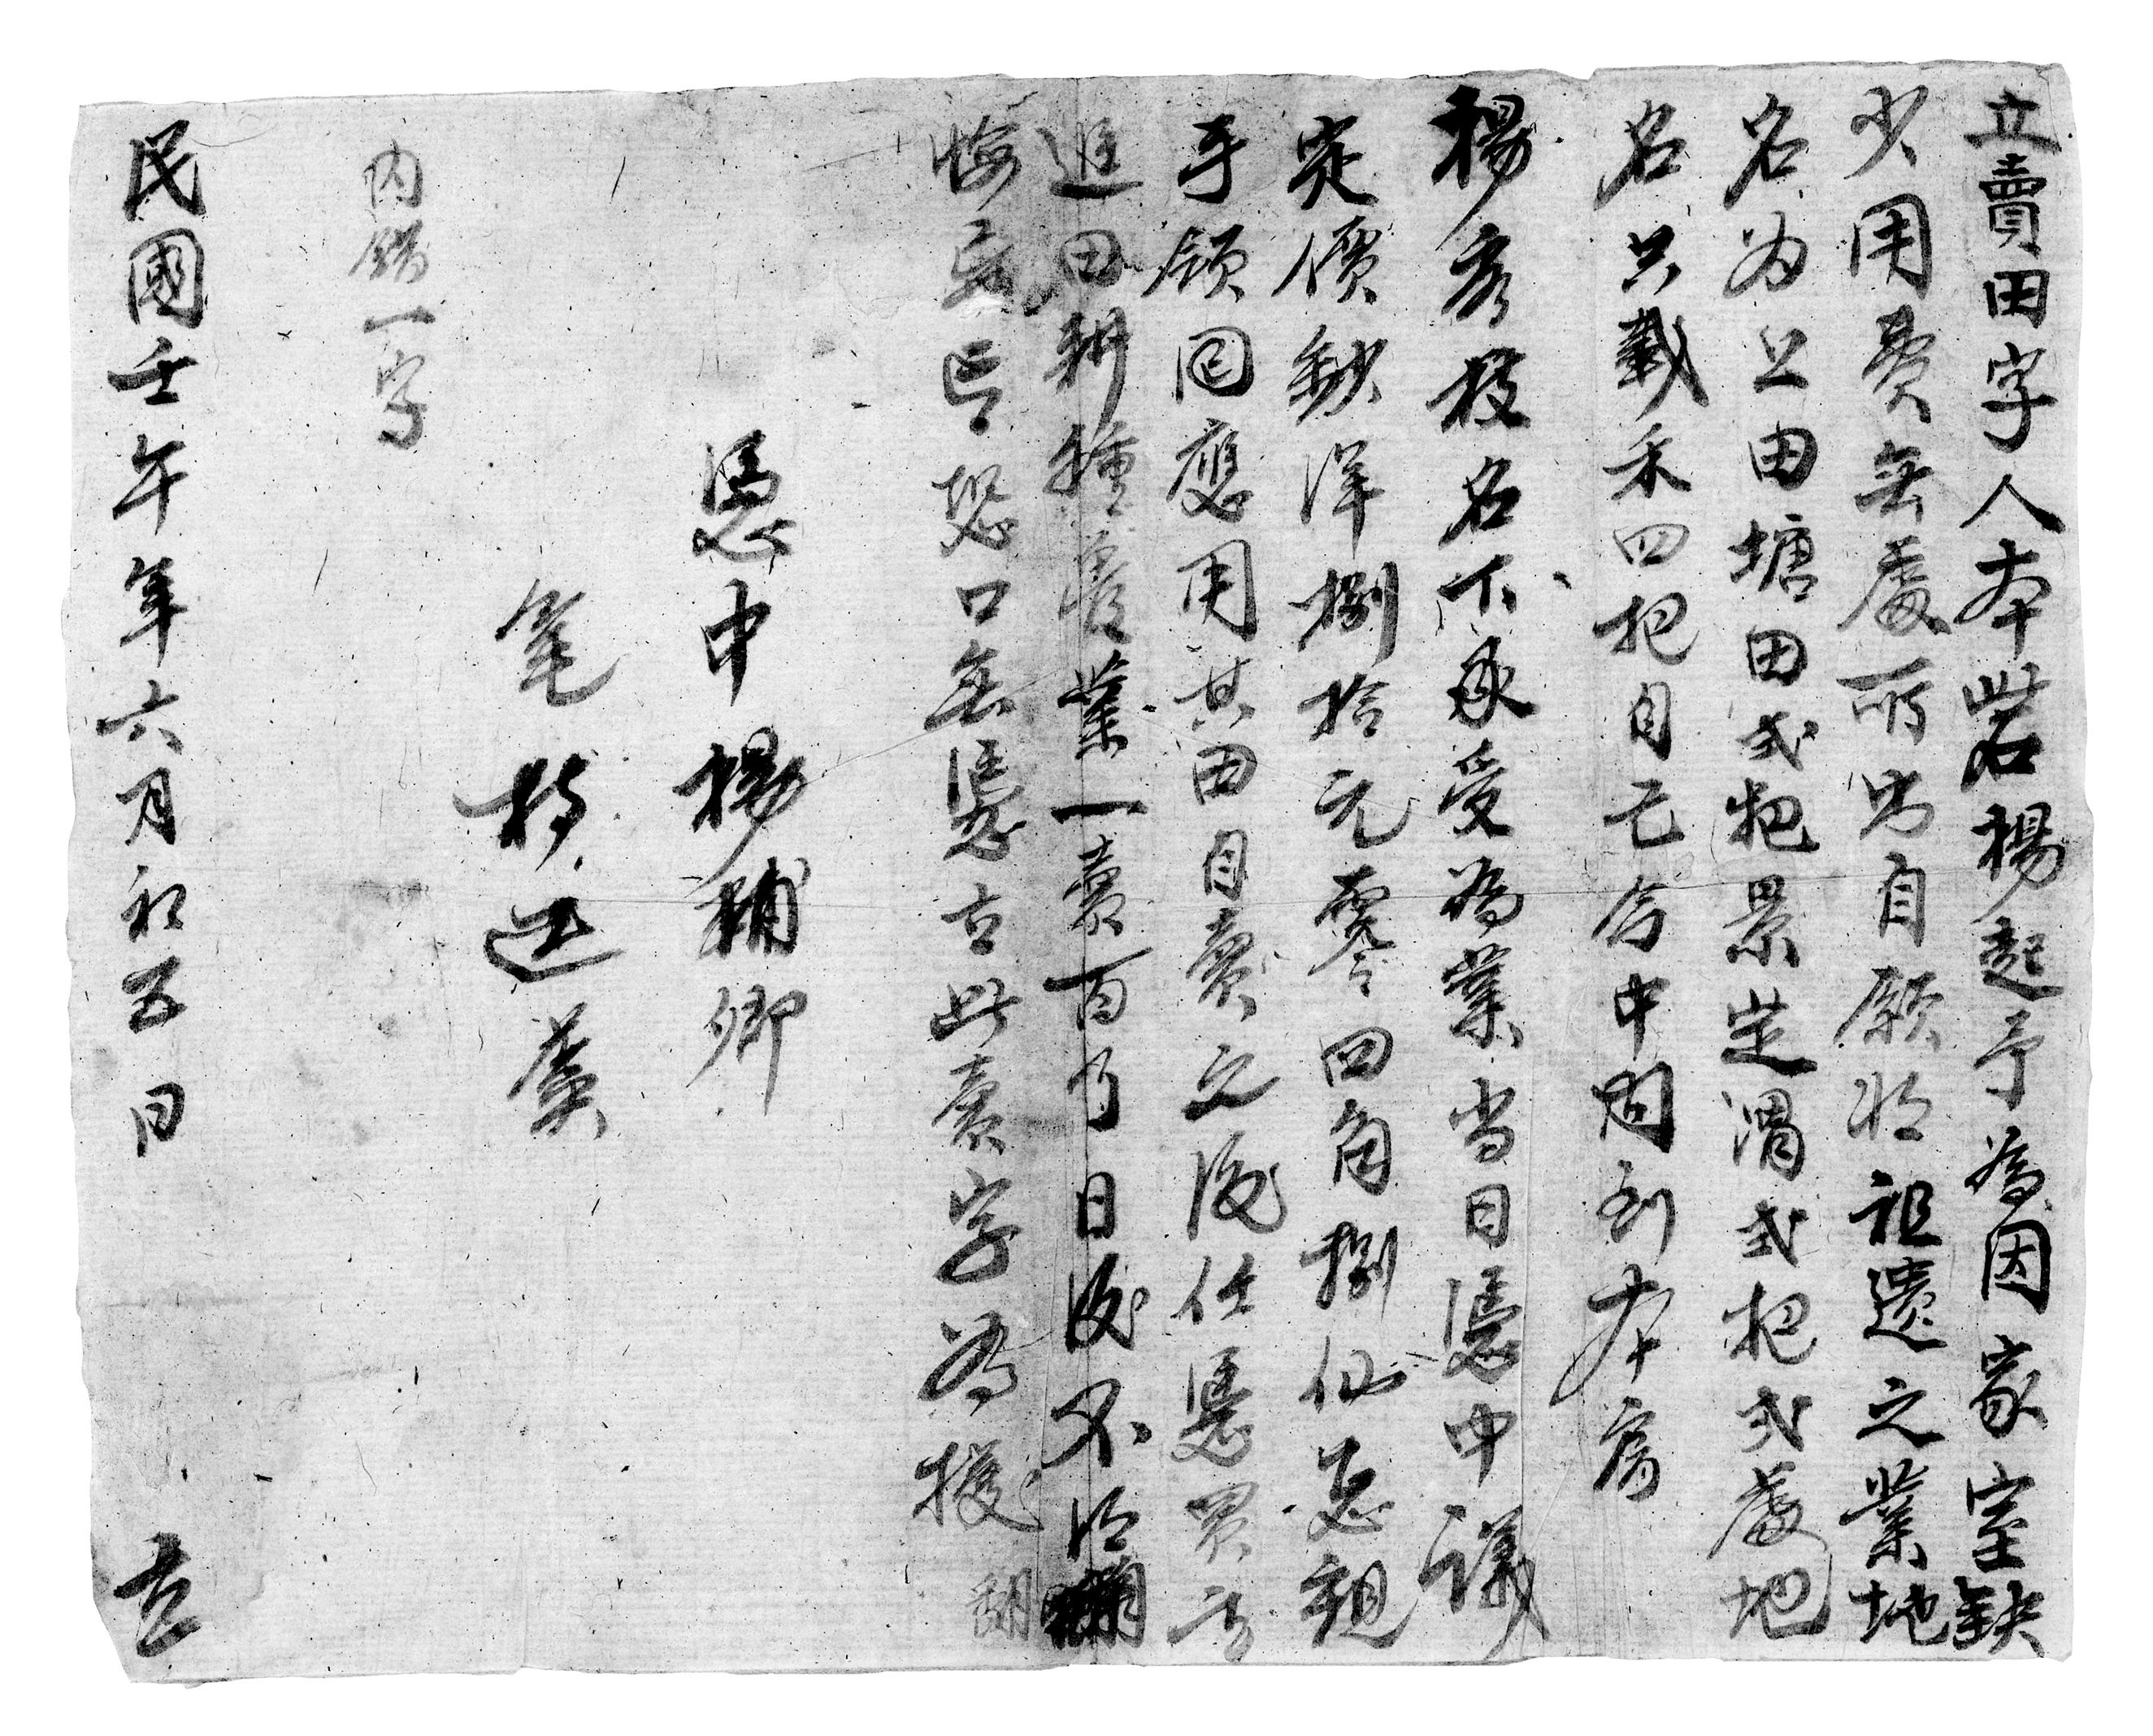 立賣田字人本砦楊起予為因家室缺
少用費無處所出自願將祖遺之業地
名为上田塘田弍把景芷渭弍把弍處地
名共載禾四把自己合中問到本房
楊宏枝名下承受為業当日憑中議
定價鈔洋捌拾元零四角捌仙怎親
手領回應用其田自賣之後任憑買主
進田耕種管業一賣百了日後不得
悔吾言恐口無憑立此賣字為據
翻
憑中 楊輔卿
笔 楊运蓂
內錯一字
民國壬午年年六月初五日 立